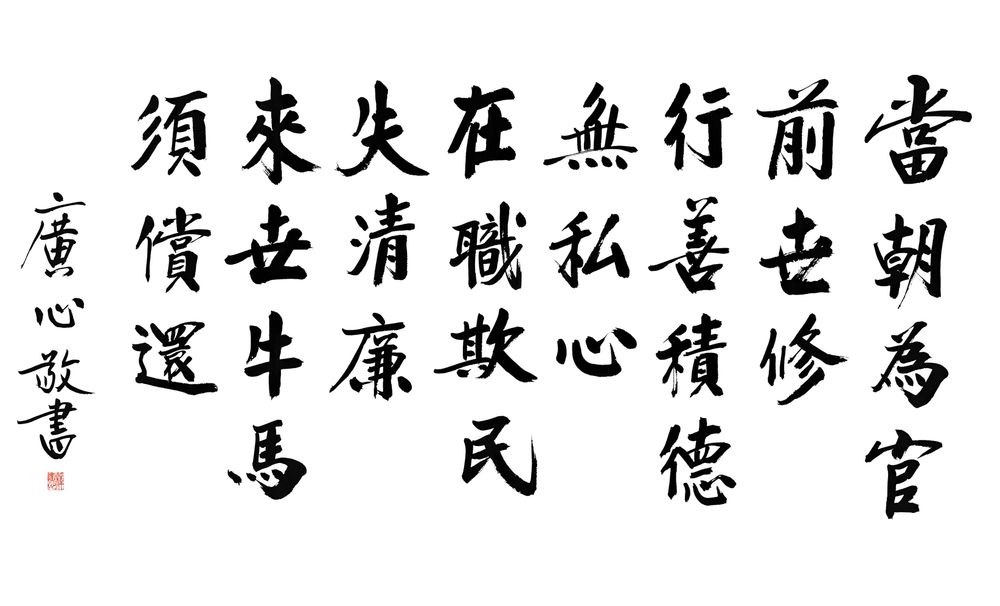 當朝為官
前世修
行善積德
無私心
在職欺民
失清廉
來世牛馬
須償還
廣心敬書